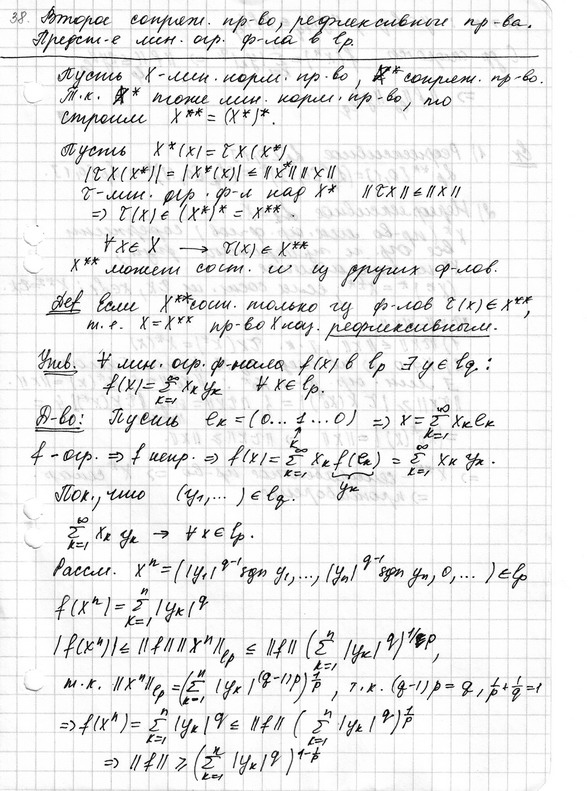 38. Второе сопряж. пр-во, рефлексивные пр-ва.
Предст-е лин. огр. ф-ла в lp.
Пусть X-лин. норм. пр-во, X* сопряж. пр-во.
Т.к. X* тоже лин. норм. пр-во, то
строим X** = (X*)*.
Пусть X*(x) = τX(X*)
|τX(X*)| = |X*(x)| ≤ ||X*|| ||X||
τ-лин. огр. ф-л над X* ||τX|| ≤ ||X||
⇒ τ(x) ∈ (X*)* = X**.
∀x∈X → τ(x) ∈ X**
X** может сост. и из других ф-лов.
Def Если X** сост. только из ф-лов τ(x) ∈ X**,
т.е. X = X** пр-во X наз. рефлексивным.
Утв. ∀ лин. огр. ф-нала f(x) в lp ∃ y ∈ lq:
f(x) = ∑_{k=1}^∞ xk yk ∀x∈lp.
Д-во: Пусть ek = (0...1...0) ⇒ x = ∑_{k=1}^∞ xk ek
k
f - огр. ⇒ f непр. ⇒ f(x) = ∑_{k=1}^∞ xk f(ek) = ∑_{k=1}^∞ xk yk.
yk
Пок., что (y1,...) ∈ lq.
∑_{k=1}^∞ xk yk → ∀x∈lp.
Рассм. x^n = (|y1|^{q-1} sgn y1, ..., |yn|^{q-1} sgn yn, 0, ...) ∈ lp
f(x^n) = ∑_{k=1}^n |yk|^q
|f(x^n)| ≤ ||f|| ||x^n||_{lp} ≤ ||f|| (∑_{k=1}^n |yk|^q)^{1/p},
т.к. ||x^n||_{lp} = (∑_{k=1}^n |yk|^{(q-1)p})^{1/p}, т.к. (q-1)p = q, 1/p + 1/q = 1
⇒ f(x^n) = ∑_{k=1}^n |yk|^q ≤ ||f|| (∑_{k=1}^n |yk|^q)^{1/p}
⇒ ||f|| ≥ (∑_{k=1}^n |yk|^q)^{1-1/p}